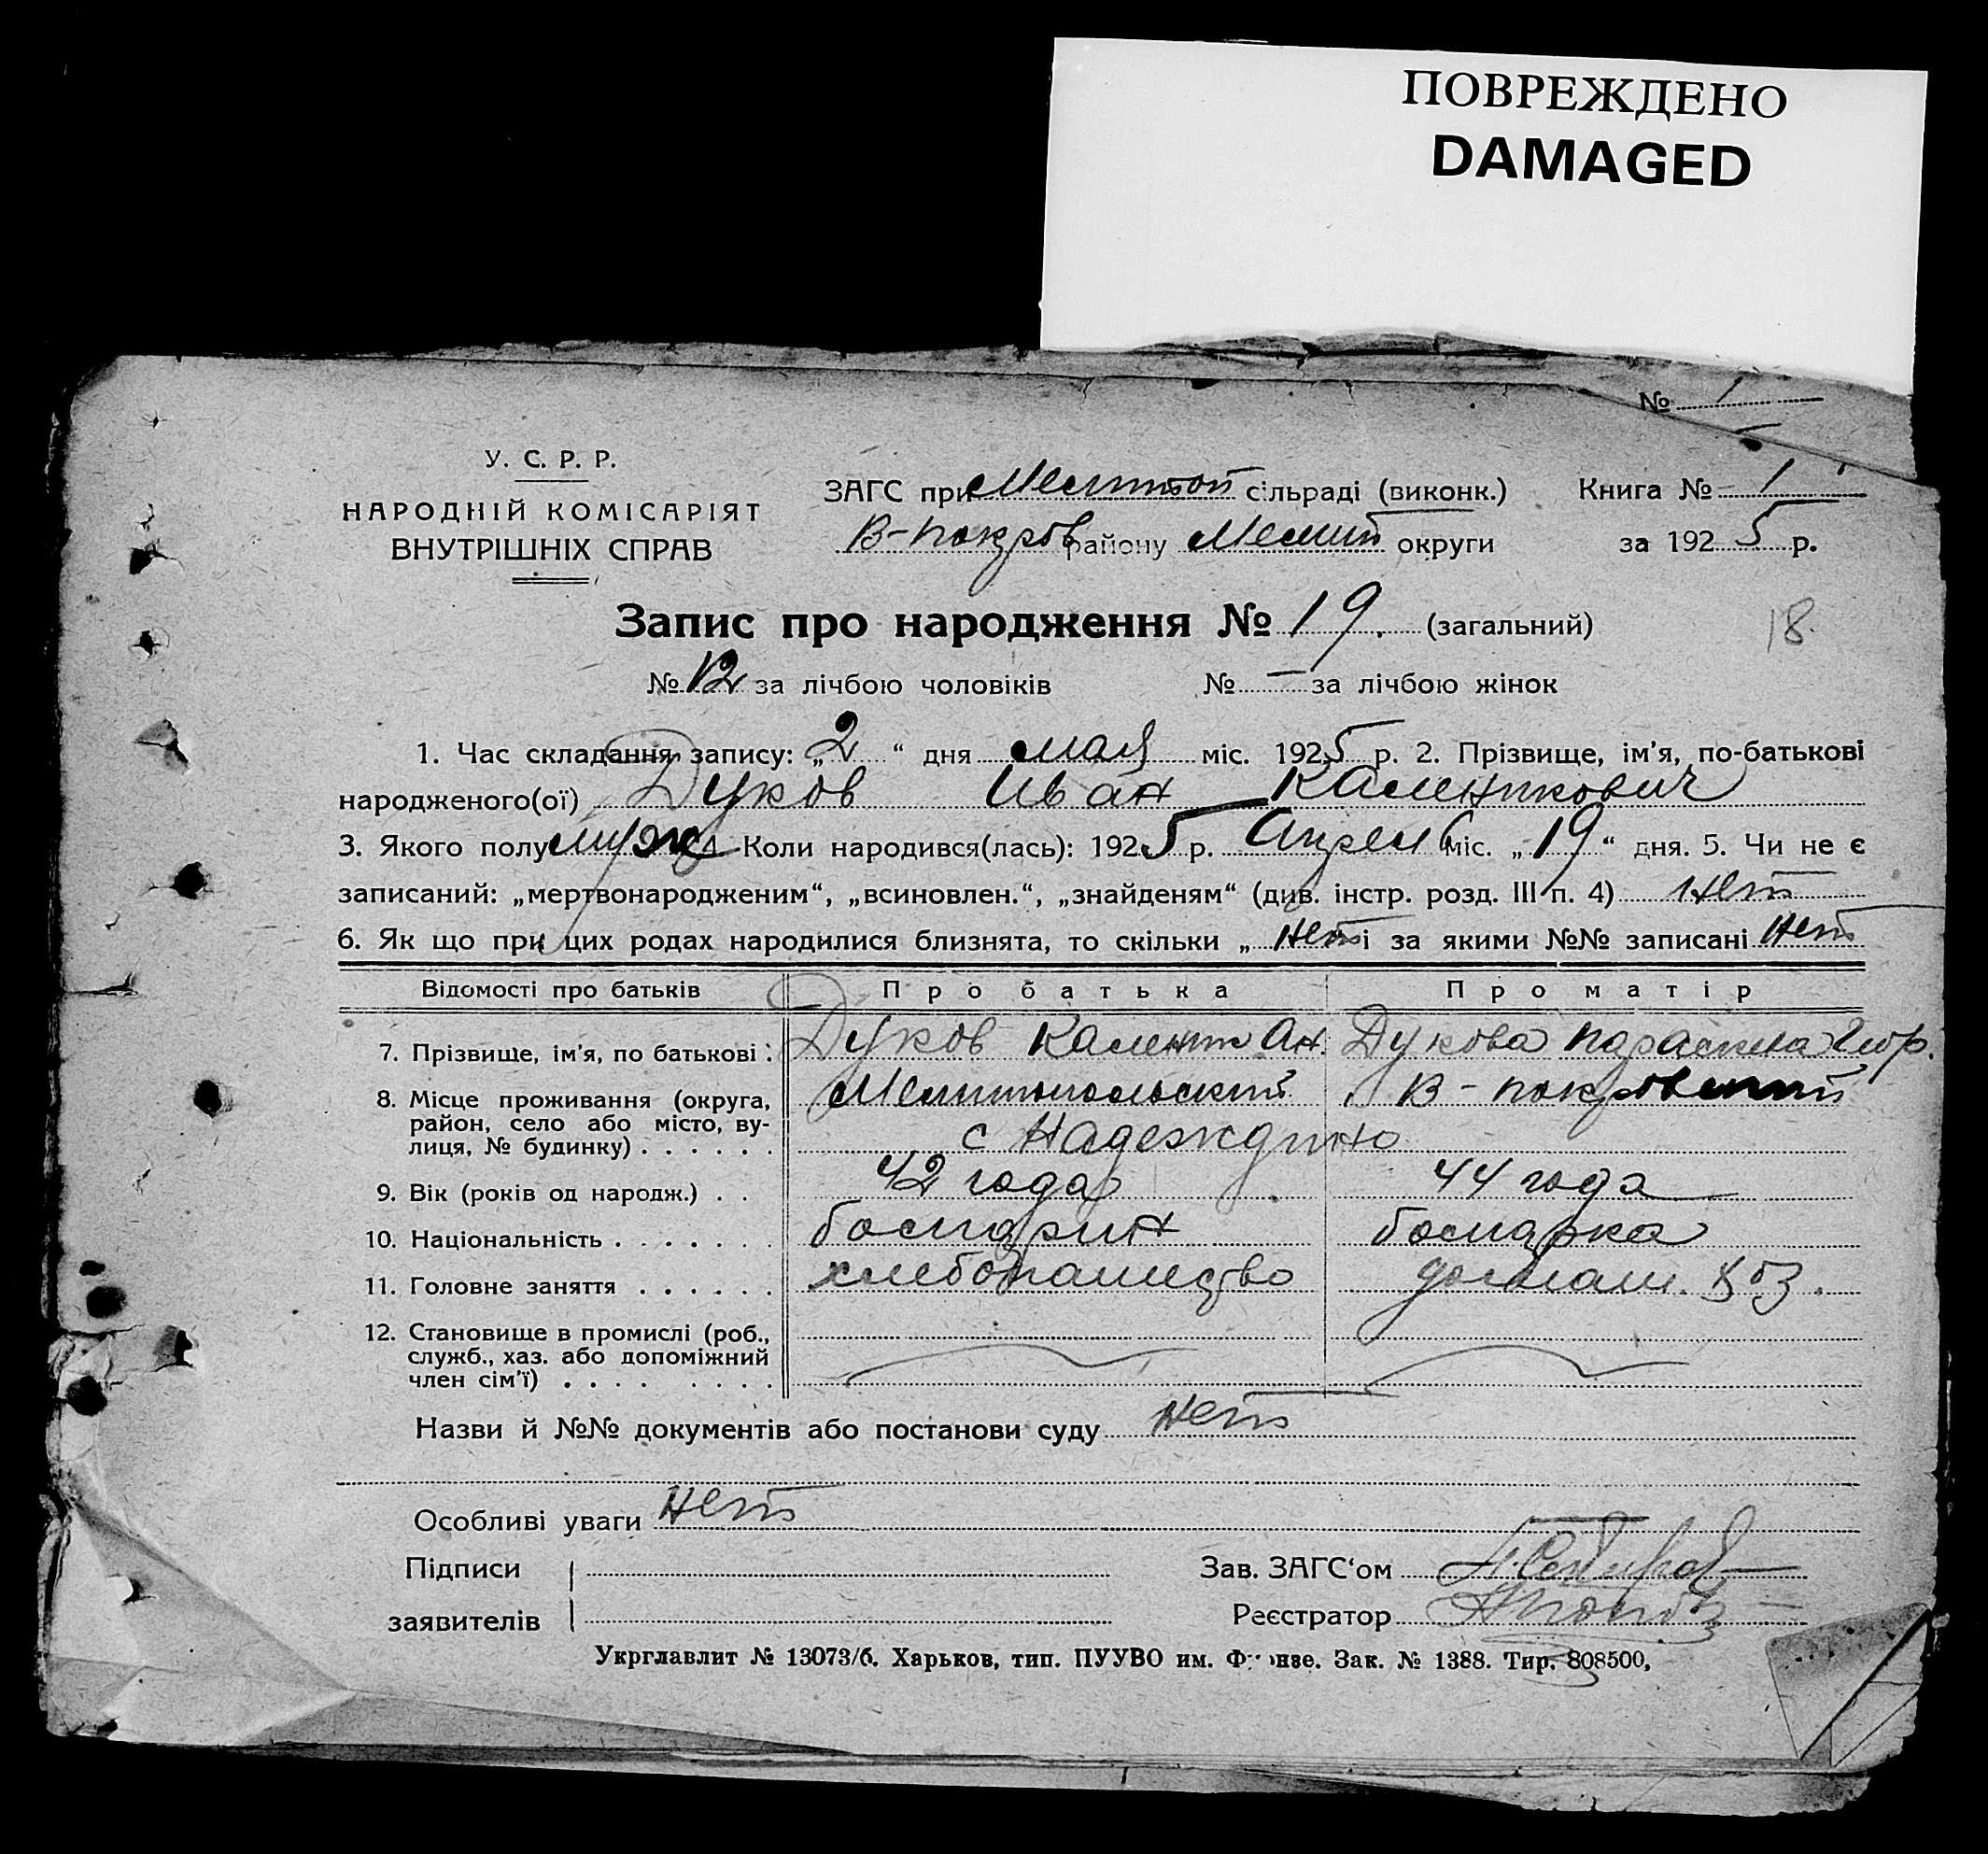 ПОВРЕЖДЕНО
DAMAGED
№ 1
У. С. Р. Р.
НАРОДНІЙ КОМІСАРІЯТ
ВНУТРІШНІХ СПРАВ
ЗАГС при Мелитоп сільраді (виконк.) Книга № 1
В-покров району Мелит округи за 1925 р.
Запис про народження № 19. (загальний)
18.
№ 12 за лічбою чоловіків № — за лічбою жінок
1. Час складання запису: „2“ дня мая міс. 1925 р. 2. Прізвище, ім’я, по-батькові
народженого(ої) Дуков Иван Каленикович
3. Якого полу муж 4 Коли народився(лась): 1925 р. Апреля міс. „19“ дня. 5. Чи не є
записаний: „мертвонародженим“, „всиновлен.“, „знайденям“ (див. інстр. розд. III п. 4) нет
6. Як що при цих родах народилися близнята, то скільки „ нет і за якими №№ записані нет
Відомості про батьків Про батька Про матір
7. Прізвище, ім’я, по батькові: Дуков Каленик Ан. Дукова Параскева Геор.
8. Місце проживання (округа, Мелитопольский В-покровский
район, село або місто, ву-
лиця, № будинку) . . . . . . с Надеждино
9. Вік (років од народж.) . . 42 года 44 года
10. Національність . . . . . . . болгарин болгарка
11. Головне заняття . . . . . . хлебопашество домаш. хоз.
12. Становище в промислі (роб.,
служб., хаз. або допоміжний
член сім’ї) . . . . . . . .
Назви й №№ документів або постанови суду нет
Особливі уваги нет
Підписи
Зав. ЗАГС‘ом
заявителів
Реєстратор
Укрглавлит № 13073/б. Харьков, тип. ПУУВО им. Фрунзе. Зак. № 1388. Тир. 808500,